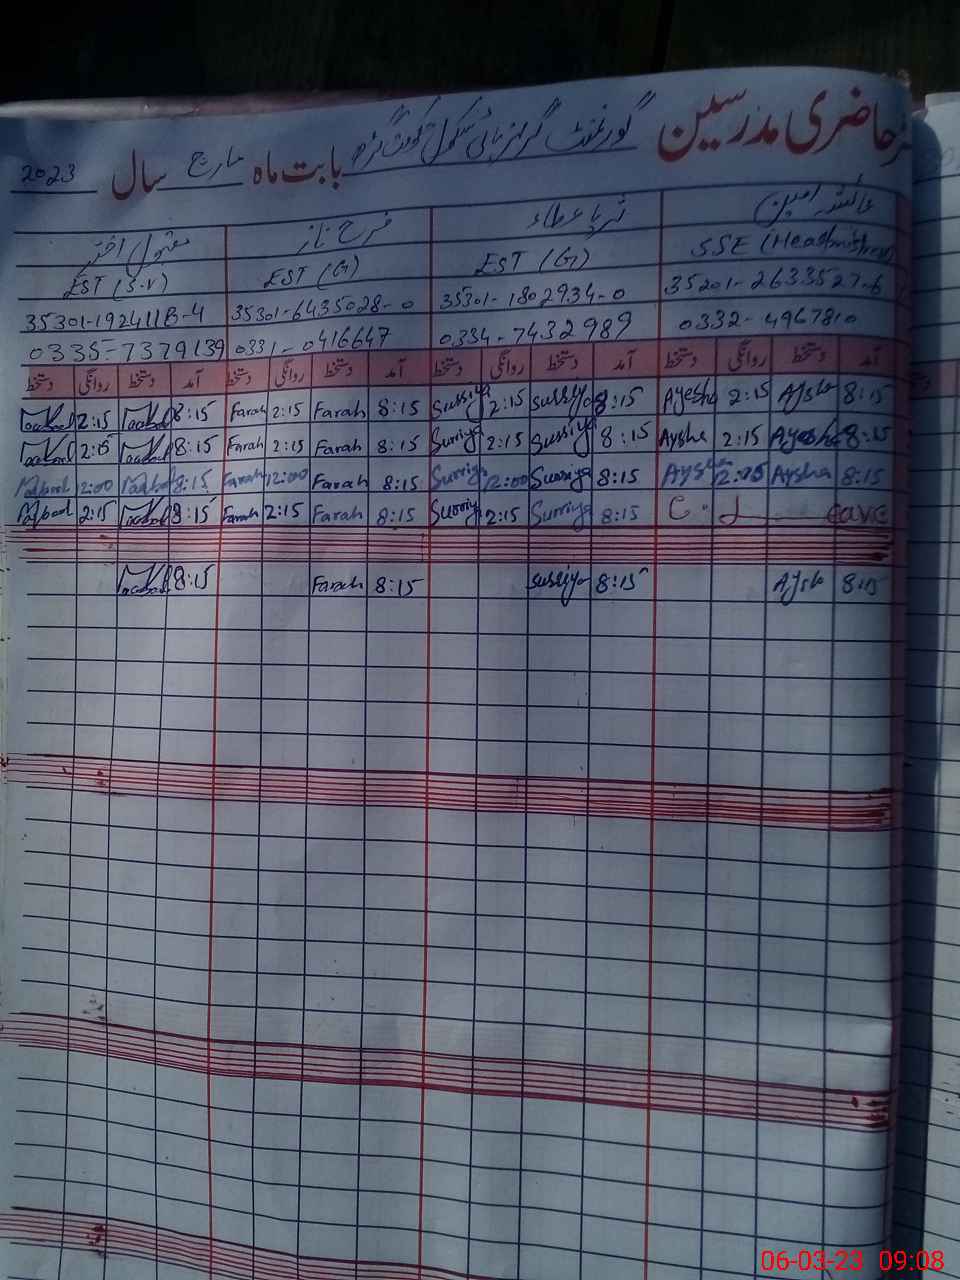 حاضری مدرسین گورنمنٹ گرلز ہائی سکول بابت ماہ مارچ سال 2023
عائشہ امین ثریا عطاء فرح ناز مقبول اختر
SSE (Headmistress) EST (G) EST (G) EST (S.V)
35201-2633527-6 35301-1802934-0 35301-6435028-0
0332-4967810 0334-7432989 0331-0416647 0335-7379139
آمد دستخط روانگی دستخط آمد دستخط روانگی دستخط آمد دستخط روانگی دستخط آمد دستخط روانگی دستخط
8:15 Aysha 2:15 Ayesha 8:15 Surriya 2:15 Surriya 8:15 Farah 2:15 Farah 8:15 2:15
8:15 Ayesha 2:15 Aysha 8:15 Surriya 2:15 Surriya 8:15 Farah 2:15 Farah 8:15 2:15
8:15 Aysha Aysha 8:15 Surriya 12:00 Surriya 8:15 Farah 12:00 Farah 8:15 12:00
C. Leave 8:15 Surriya 2:15 Surriya 8:15 Farah 2:15 Farah 8:15 2:15
8:15 Aysha 8:15 Surriya 8:15 Farah 8:15
06-03-23 09:08